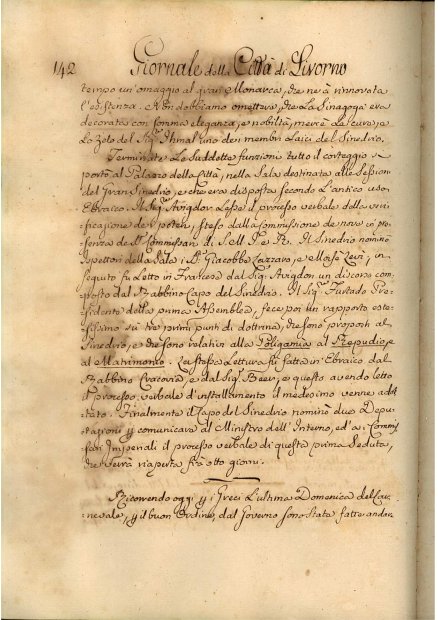 142 Giornale della Città di Livorno
tempo un'omaggio al gran Monarca, che ne à rinnovata
l'esistenza. Non dobbiamo omettere, che La Sinagoga era
decorata con somma eleganza, e nobiltà, mercè Le cure, e
Lo Zelo del Sig.r Ihmal uno de i membri Laici del Sinedrio.
Terminate Le Suddette funzioni tutto il corteggio si
portò al Palazzo della Città, nella Sala destinata alle Sessioni
del Gran Sinedrio, e che era disposta secondo L'antico uso
Ebraico. Il Sig.r Avigdor Lesse il processo verbale della veri=
ficazione de i poteri, steso dalla Commissione de nove in pre=
senza de SS.ri Commissari di S. M. I. e R. Il Sinedrio nominò
Ispettori della Sala i SS.ri Giacobbe Lazzaro, e Mosè Levi, in
seguito fu Letto in Francese dal Sig.r Avigdon un discorso com=
posto dal Rabbino Capo del Sinedrio. Il Sig.r Furtado Pre=
sidente della prima Assemblea, fece poi un rapporto este=
sissimo su tre primi punti di dottrina, che sono proposti al
Sinedrio, e che sono relativi alla Poligamia al Repudio, e
al Matrimonio. La stessa Lettura fù fatta in Ebraico dal
Rabbino Cracovia, e dal Sig.r Beer, e questo avendo letto
il processo verbale d'installamento il medesimo venne adot=
tato. Finalmente il Capo del Sinedrio nominò due Depu=
tazioni p comunicare al Ministro dell'Interno, ed'a i Commis=
sari Imperiali il processo verbale di questa prima Seduta,
che verrà riaperta frà otto giorni.
Ricorrendo oggi p i Greci L'ultima Domenica del Car=
nevale, p il buon Ordine dal Governo sono state fatte andar